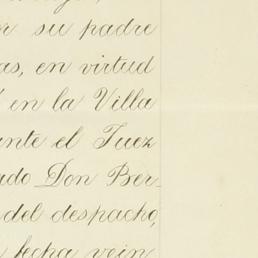 r su padre
as, en virtud
en la Villa
ante el Juez
ado Don Ber_
del despacho,
fecha vein